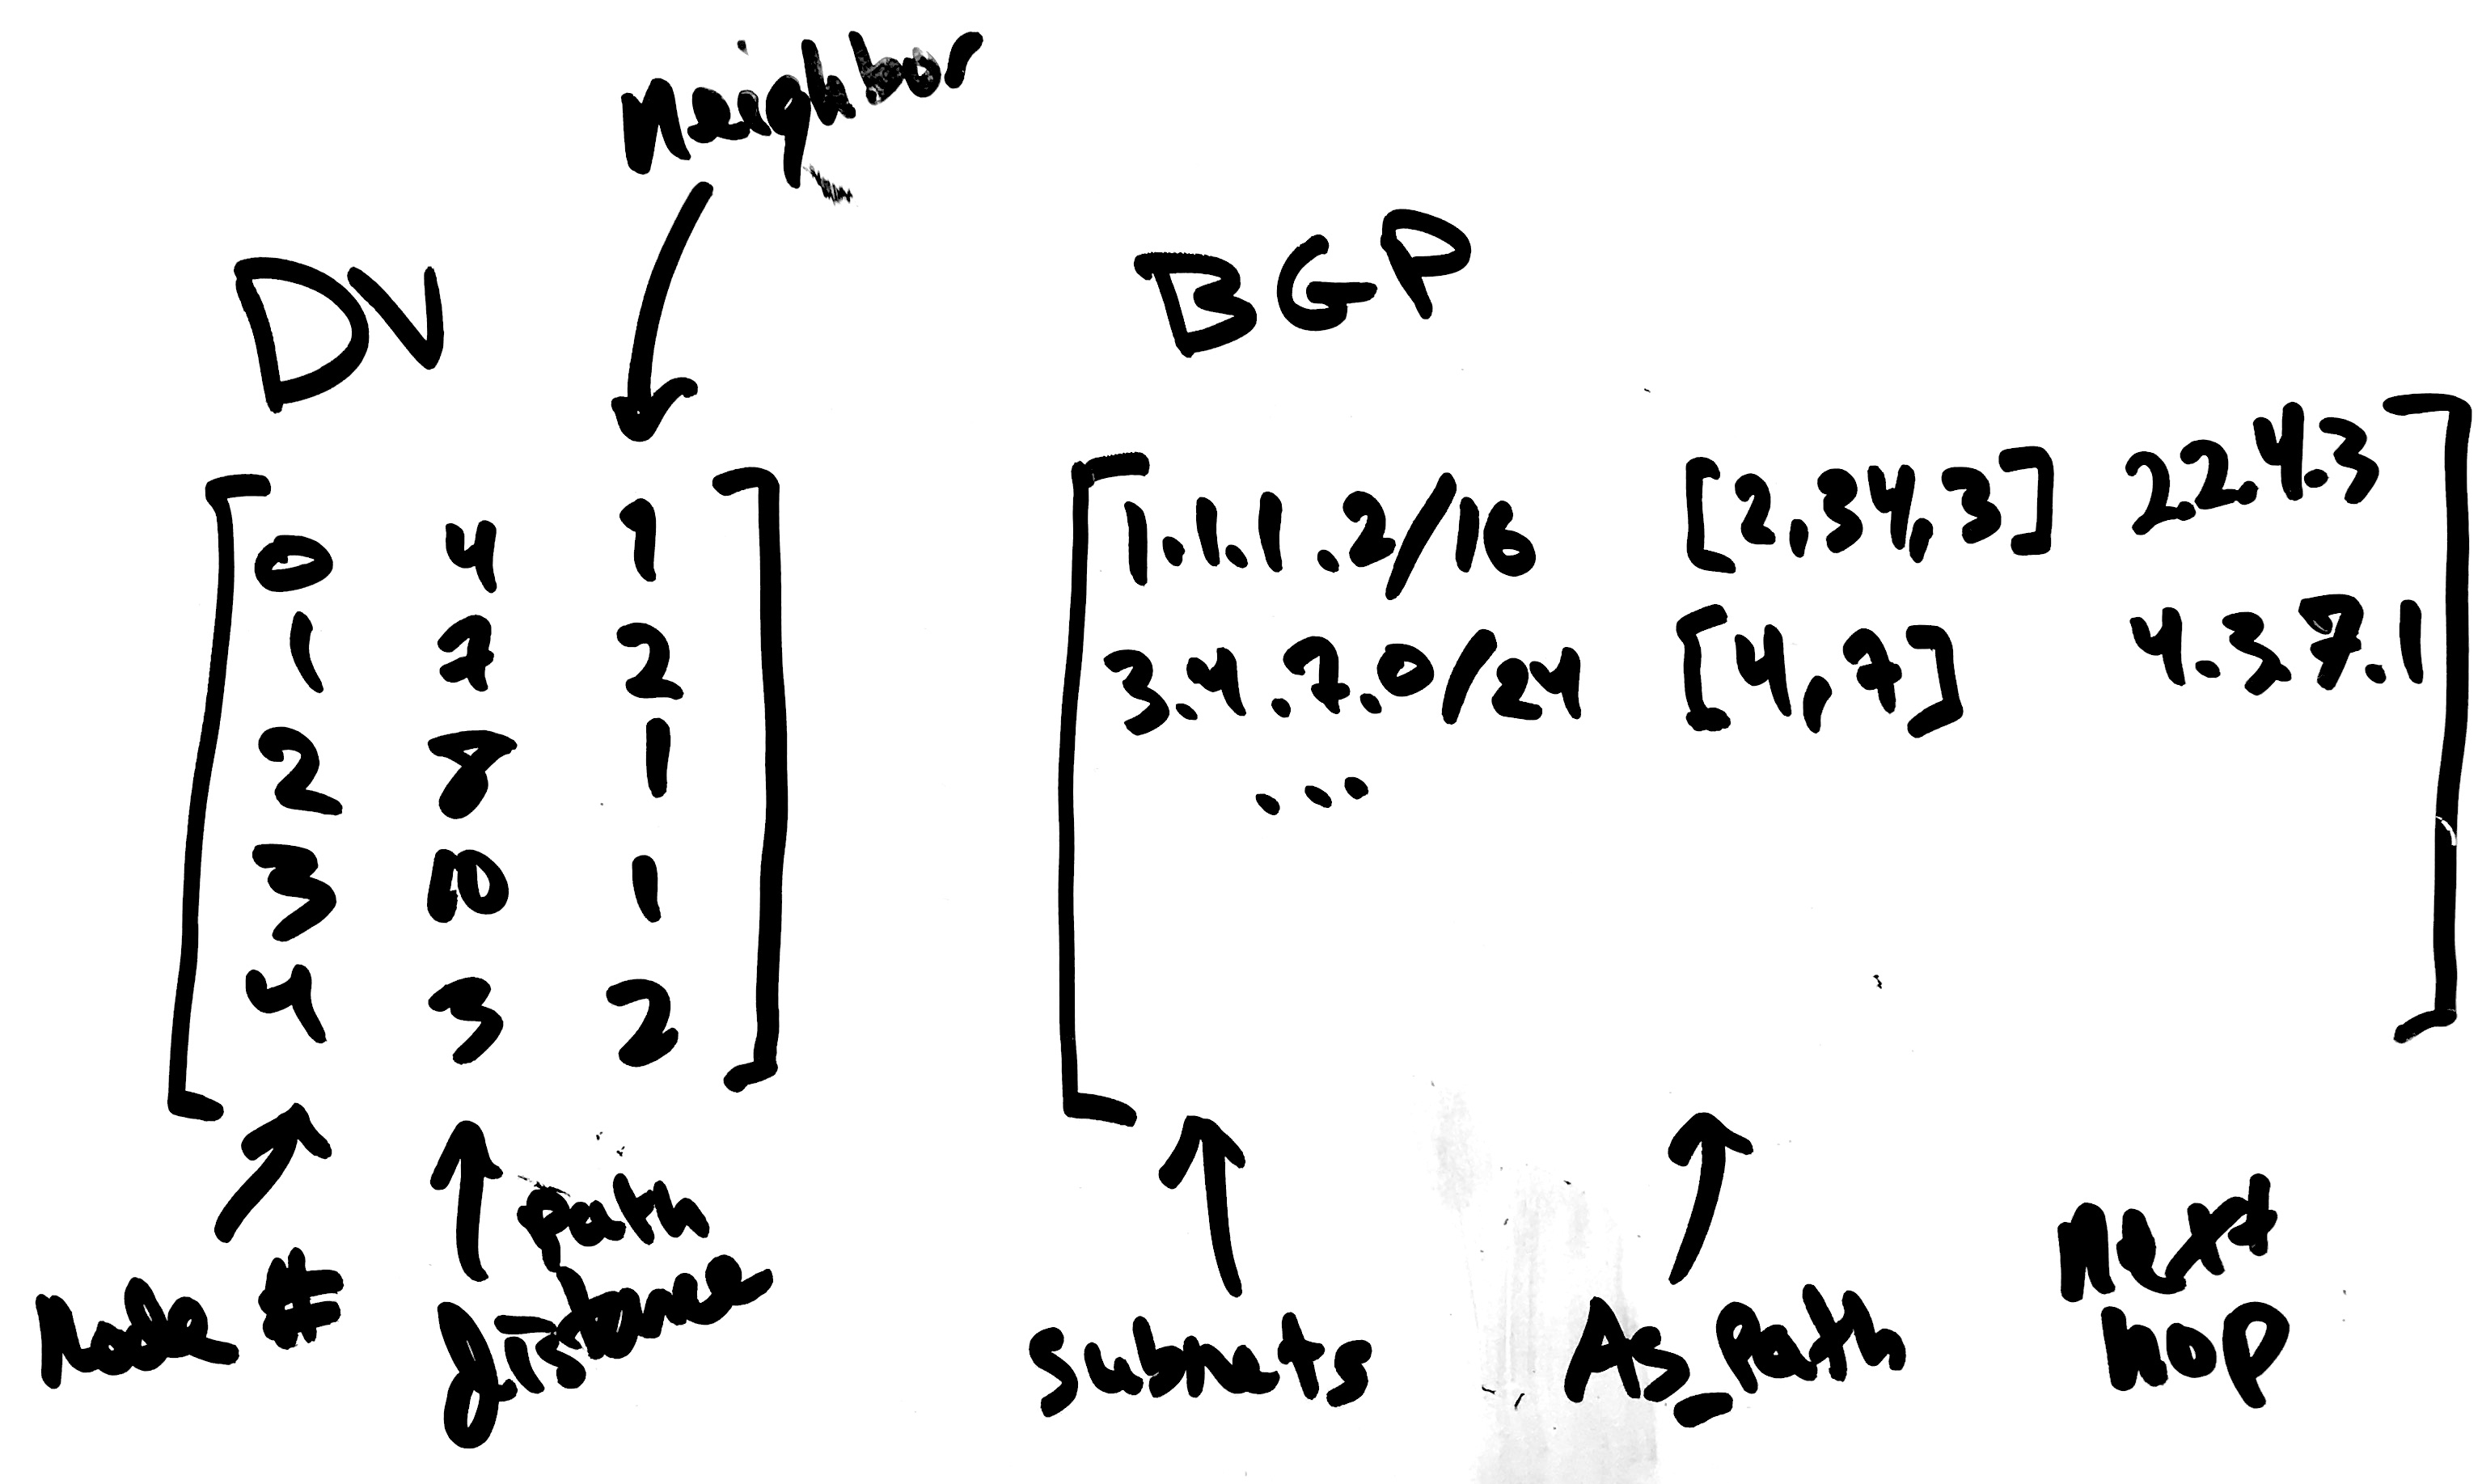 Neighbor
DV
BGP
0 4 1
1 7 2
2 8 1
3 10 1
4 3 2
Node #
path
distance
1.1.1.2/16 [2,34,3] 2.2.4.3
3.4.7.0/24 [4,7] 4.3.7.1
...
subnets
AS_Path
Next
hop